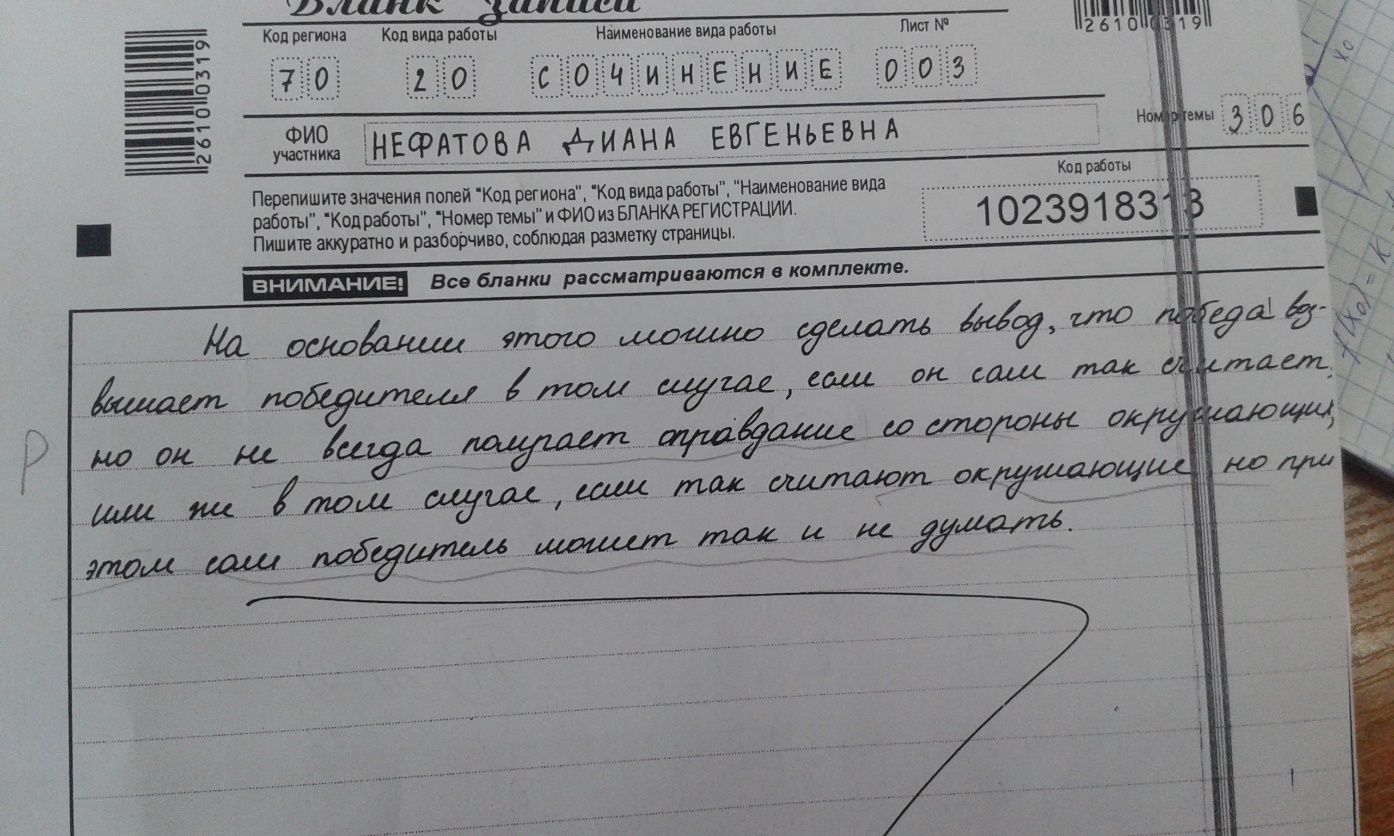 Бланк записи
Код региона Код вида работы Наименование вида работы Лист №
70 20 СОЧИНЕНИЕ 003
26100319
26100319
Номер темы 306
ФИО участника НЕФАТОВА ДИАНА ЕВГЕНЬЕВНА
Код работы
Перепишите значения полей "Код региона", "Код вида работы", "Наименование вида
работы", "Код работы", "Номер темы" и ФИО из БЛАНКА РЕГИСТРАЦИИ.
Пишите аккуратно и разборчиво, соблюдая разметку страницы.
1023918313
ВНИМАНИЕ! Все бланки рассматриваются в комплекте.
На основании этого можно сделать вывод, что победа воз-
вышает победителя в том случае, если он сам так считает,
но он не всегда получает оправдание со стороны окружающих,
Р
или же в том случае, если так считают окружающие, но при
этом сам победитель может так и не думать.
f(x0) = к
x0